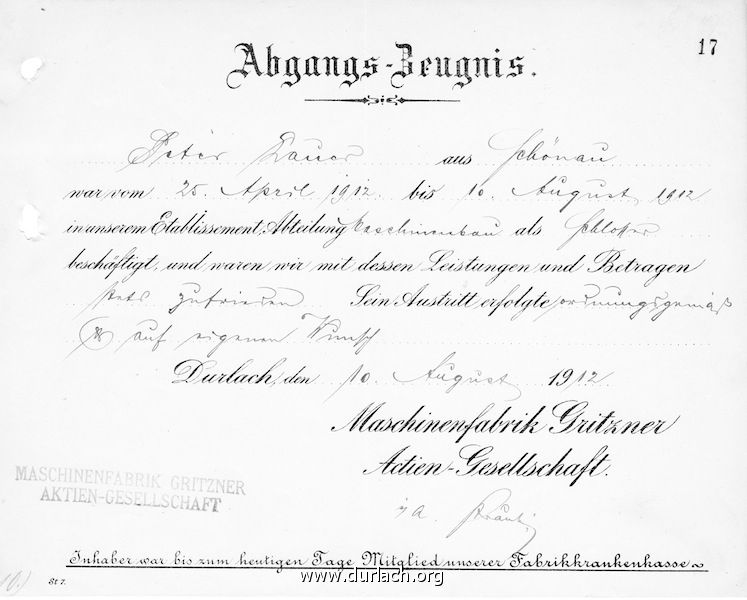 17
Abgangs-Zeugnis.
Peter Bauer aus Schönau
war vom 25. April 1912. bis 10. August 1912
in unserem Etablissement, Abteilung Maschinenbau als Schlosser
beschäftigt, und waren wir mit dessen Leistungen und Betragen
stets zufrieden Sein Austritt erfolgte ordnungsgemäß
& auf eigenen Wunsch
Durlach, den 10. August 1912.
Maschinenfabrik Gritzner
Actien-Gesellschaft.
MASCHINENFABRIK GRITZNER
AKTIEN-GESELLSCHAFT
i A.
Inhaber war bis zum heutigen Tage Mitglied unserer Fabrikkrankenkasse
St 7.
www.durlach.org